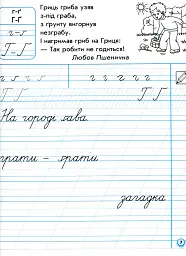 г-ґ
Г-Ґ
г-ґ
Г-Ґ
Гриць гриба узяв
з-під граба,
з ґрунту вигорнув
незграбу.
І нагримав гриб на Гриця:
— Так робити не годиться!
Любов Пшенична
г г ґ г г г г
Г Ґ Г Ґ
На городі гава.
грати – ґрати
загадка